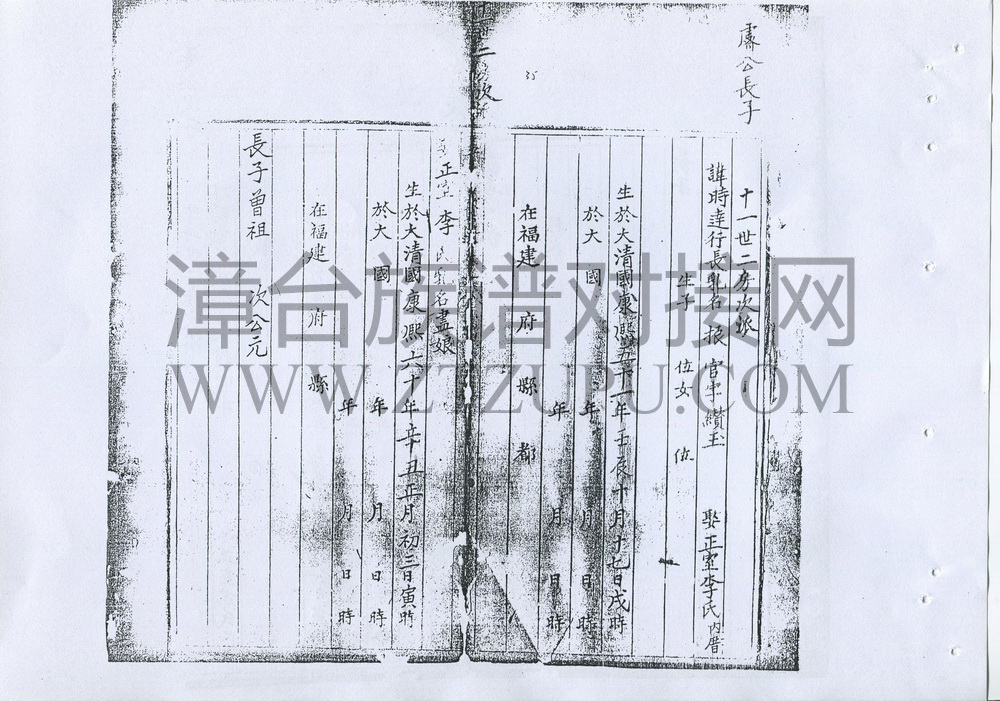 公長子
十一世二房次派
諱時達行長乳名振官字纘玉 娶正室李氏內
生子 位女 位
生於大清國康熙五十一年壬辰十月十七日戌時
於大 國 年 月 日 時
年 月 日 時
在福建 府 縣 都
正室李氏乳名盡娘
生於大清國康熙六十年辛丑正月初三日寅時
於大 國 年 月 日 時
年 月 日 時
在福建 府 縣
長子曾祖 次公元
35
漳台族谱对接网
WWW.ZTZUPU.COM